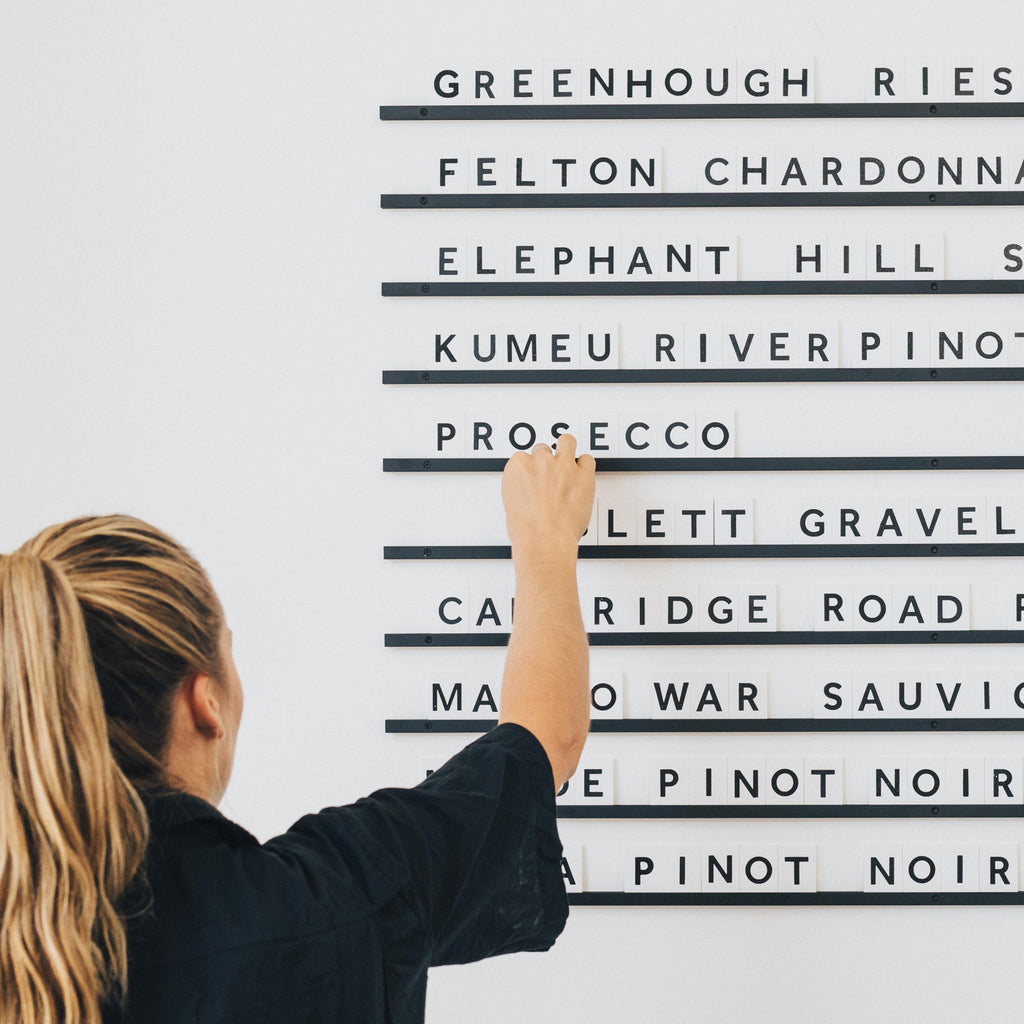 GREENHOUGH RIES
FELTON CHARDONNA
ELEPHANT HILL S
KUMEU RIVER PINOT
PROSECCO
LETT GRAVEL
CA RIDGE ROAD
MA O WAR SAUVIG
DE PINOT NOIR
A PINOT NOIR